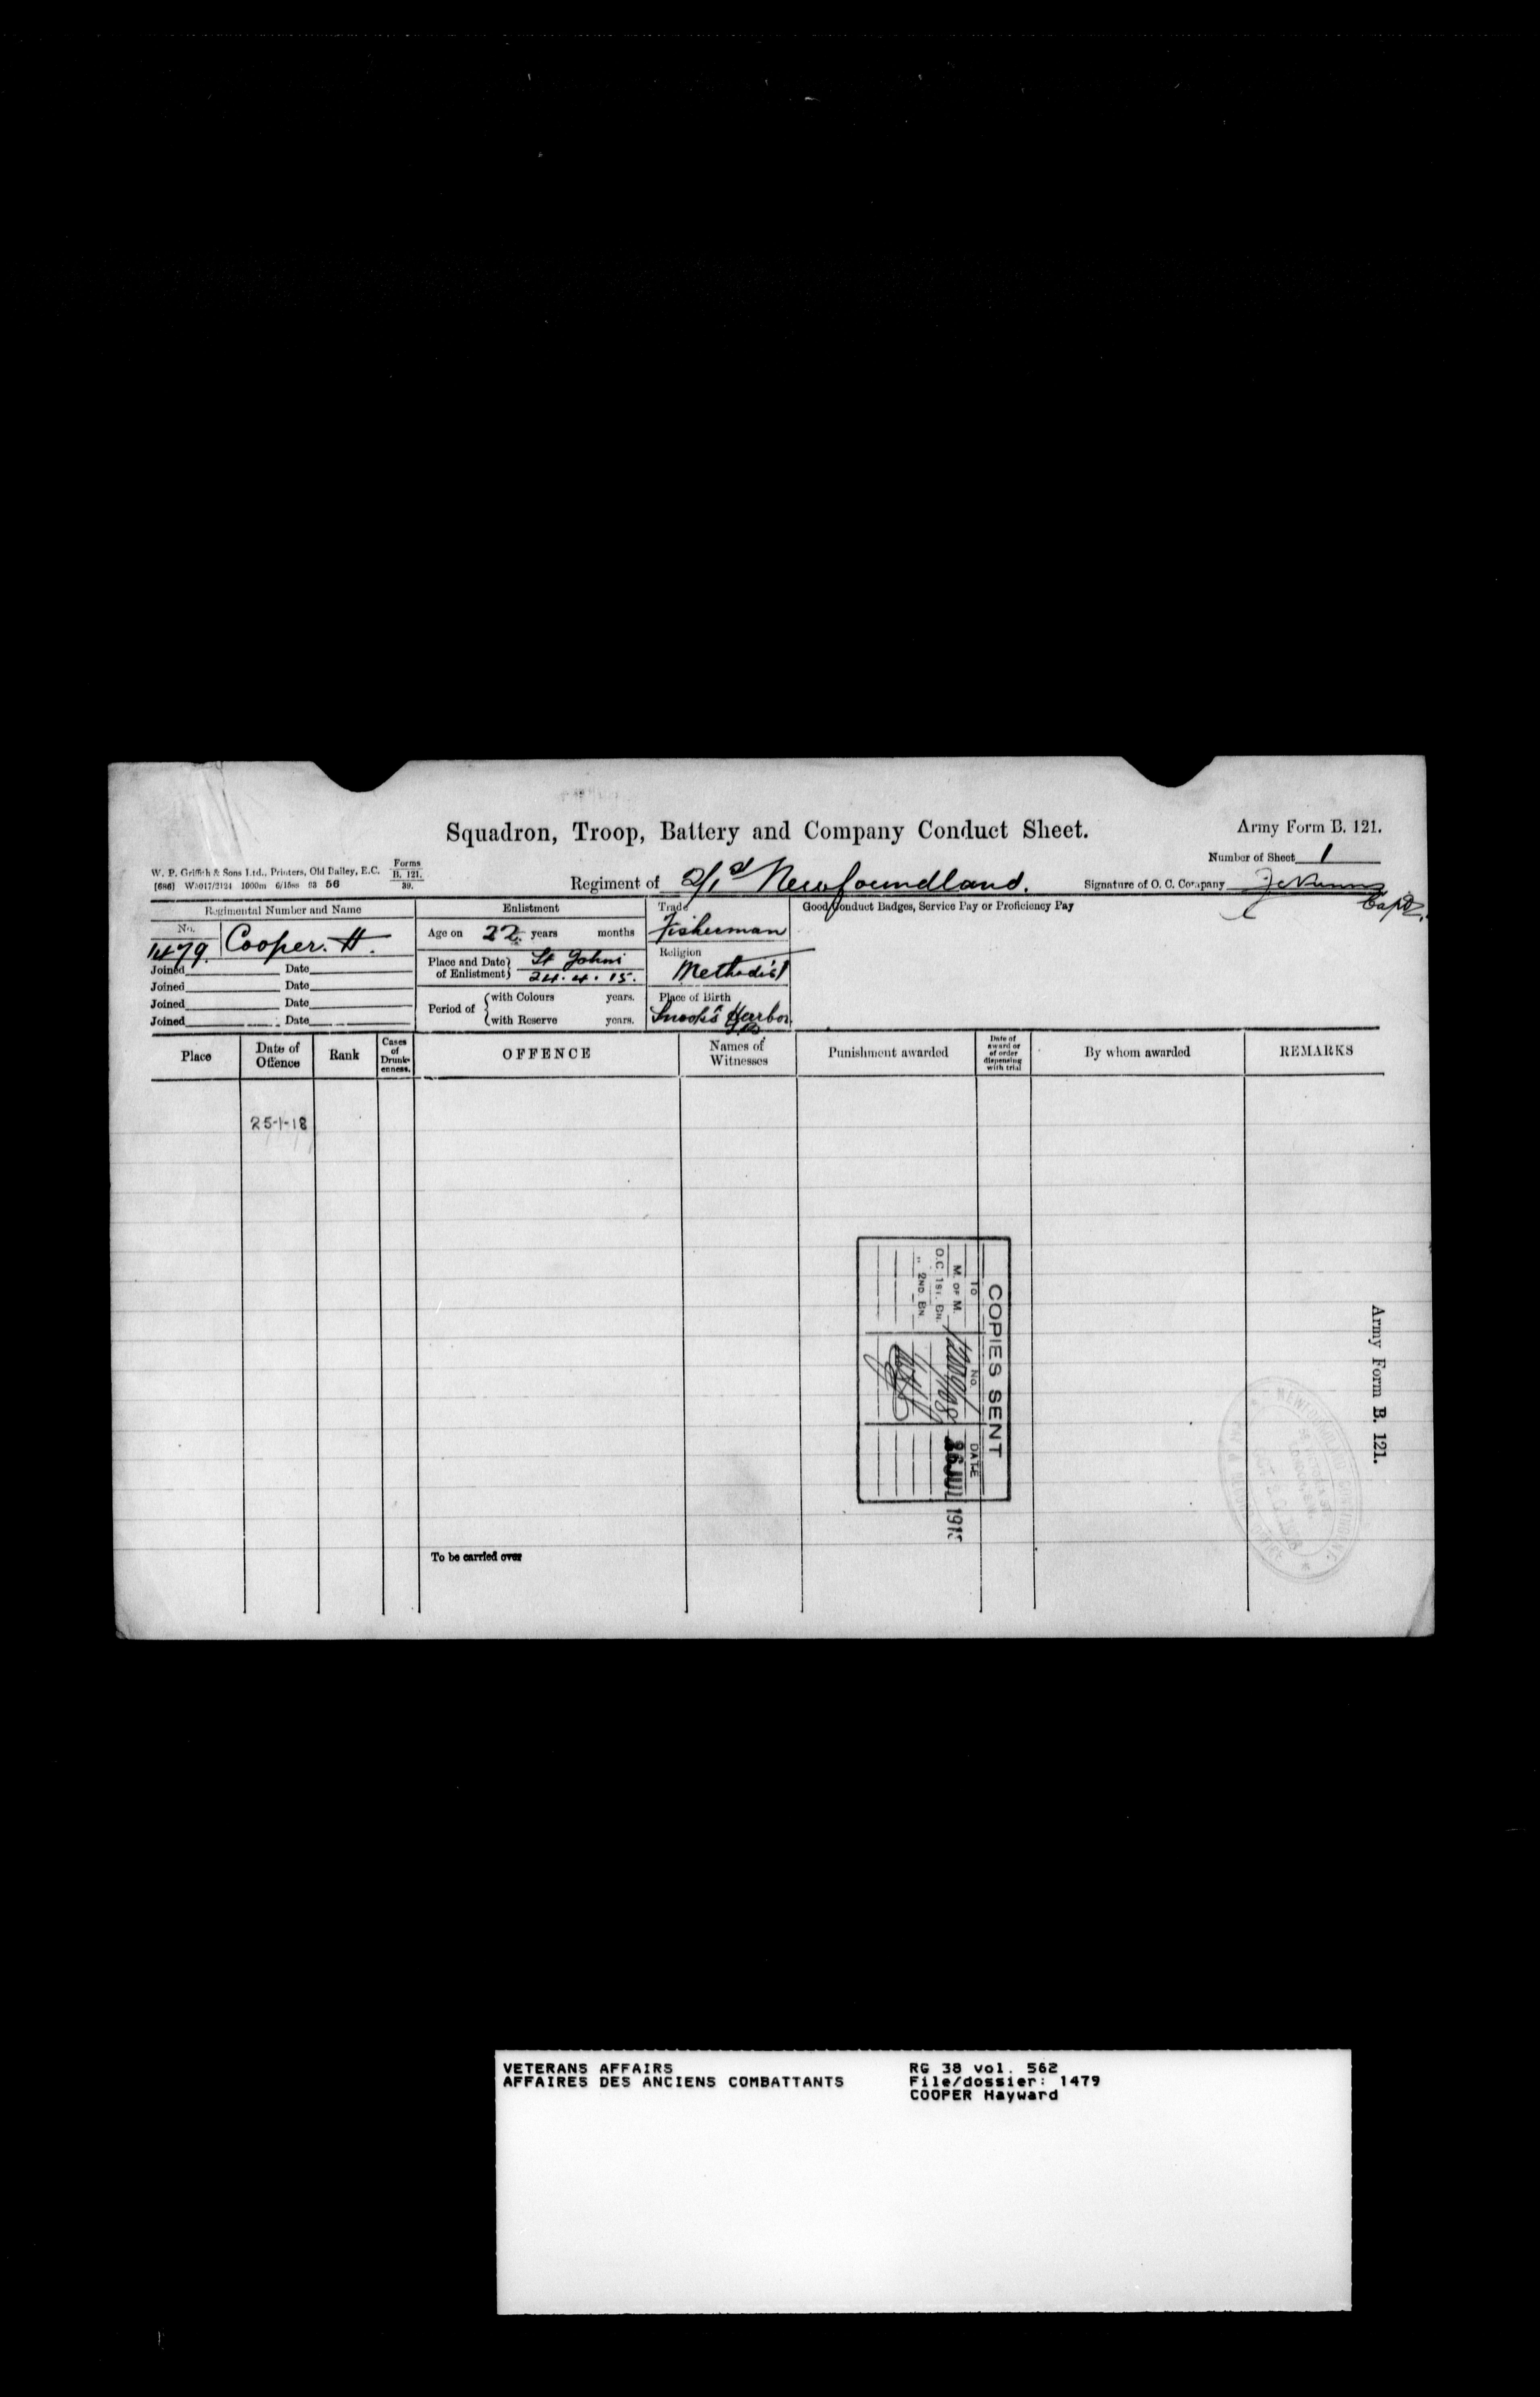 Squadron, Troop, Battery and Company Conduct Sheet.
Army Form B. 121.
Number of Sheet 1
W. P. Griffith & Sons Ltd., Printers, Old Bailey, E.C.
Forms
B. 121.
39.
[686] W3017/2124 1000m 6/15ss 93 56
Regiment of 2/1st Newfoundland.
Signature of O. C. Company
Capt.
Regimental Number and Name
No.
1479.
Cooper. H.
Joined Date
Joined Date
Joined Date
Joined Date
Enlistment
Age on 22 years months
Place and Date of Enlistment St Johns
24.4.15.
Period of with Colours years.
with Reserve years.
Trade
Fisherman
Religion
Methodist
Place of Birth
Snook's Harbor
Good Conduct Badges, Service Pay or Proficiency Pay
Place
Date of Offence
Rank
Cases of Drunkenness.
OFFENCE
Names of Witnesses
Punishment awarded
Date of award or of order dispensing with trial
By whom awarded
REMARKS
25-1-18
COPIES SENT
To No. DATE
M. OF M.
O.C. 1ST. BN.
" 2ND. BN.
To be carried over
Army Form B. 121.
VETERANS AFFAIRS
AFFAIRES DES ANCIENS COMBATTANTS
RG 38 vol. 562
File/dossier: 1479
COOPER Hayward